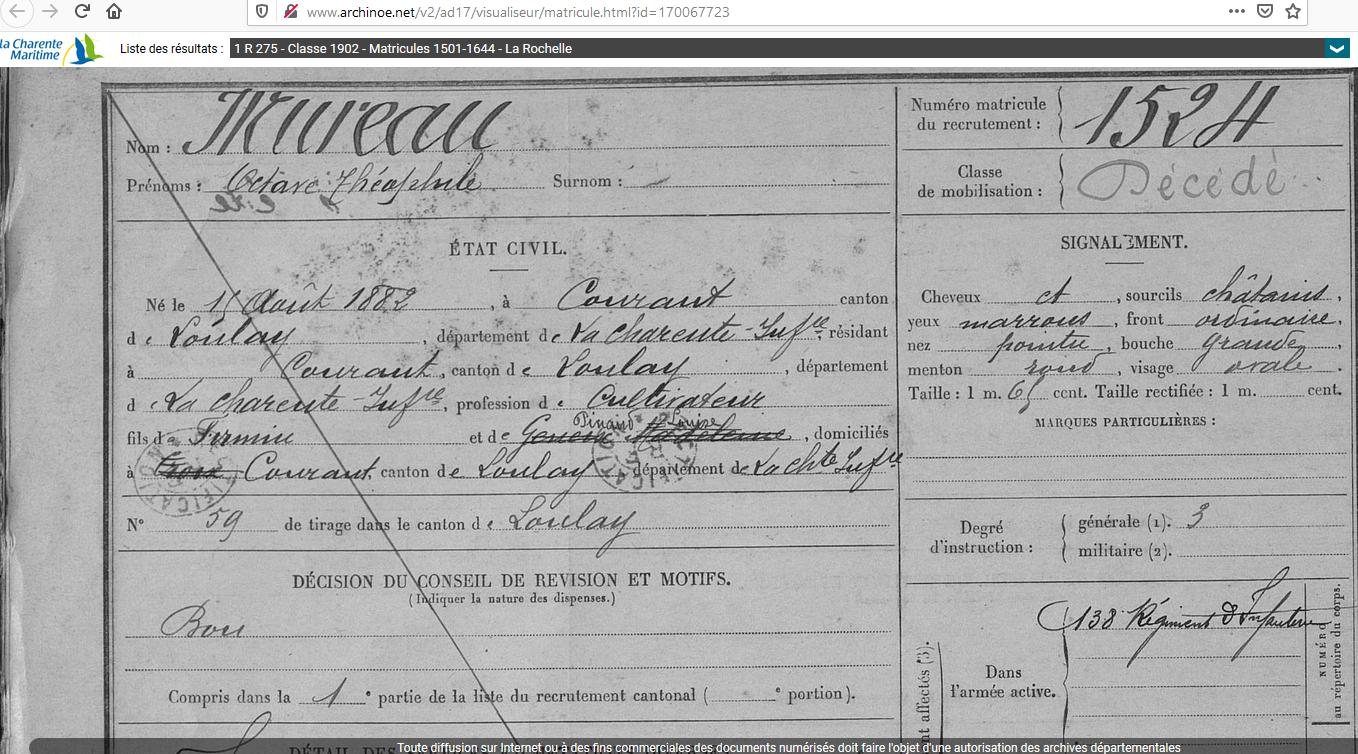 www.archinoe.net/v2/ad17/visualiseur/matricule.html?id=170067723
la Charente
Maritime
Liste des résultats : 1 R 275 - Classe 1902 - Matricules 1501-1644 - La Rochelle
Nom : Mureau
Prénoms : Octave Théophile Surnom : —
Numéro matricule du recrutement : 1524
Classe de mobilisation : Décédé
ÉTAT CIVIL.
Né le 15 Août 1882, à Courant canton
de Loulay, département de La Charente-Infre, résidant
à Courant, canton de Loulay, département
de La Charente-Infre, profession de Cultivateur
Pinaud Louise
fils de Firmin et de Madeleine, domiciliés
à Courant canton de Loulay département de La Chte Infre
N° 59 de tirage dans le canton de Loulay
DÉCISION DU CONSEIL DE REVISION ET MOTIFS.
(Indiquer la nature des dispenses.)
Bon
Compris dans la 1e partie de la liste du recrutement cantonal ( e portion).
DÉTAIL DES
SIGNALEMENT.
Cheveux et, sourcils châtains,
yeux marrons, front ordinaire,
nez pointu, bouche grande,
menton rond, visage ovale.
Taille : 1 m. 65 cent. Taille rectifiée : 1 m. cent.
MARQUES PARTICULIÈRES :
Degré d'instruction :
générale (1). 3
militaire (2).
Dans l'armée active.
138 Régiment d'Infanterie
NUMÉRO
au répertoire du corps.
affectés (3).
Toute diffusion sur Internet ou à des fins commerciales des documents numérisés doit faire l'objet d'une autorisation des archives départementales